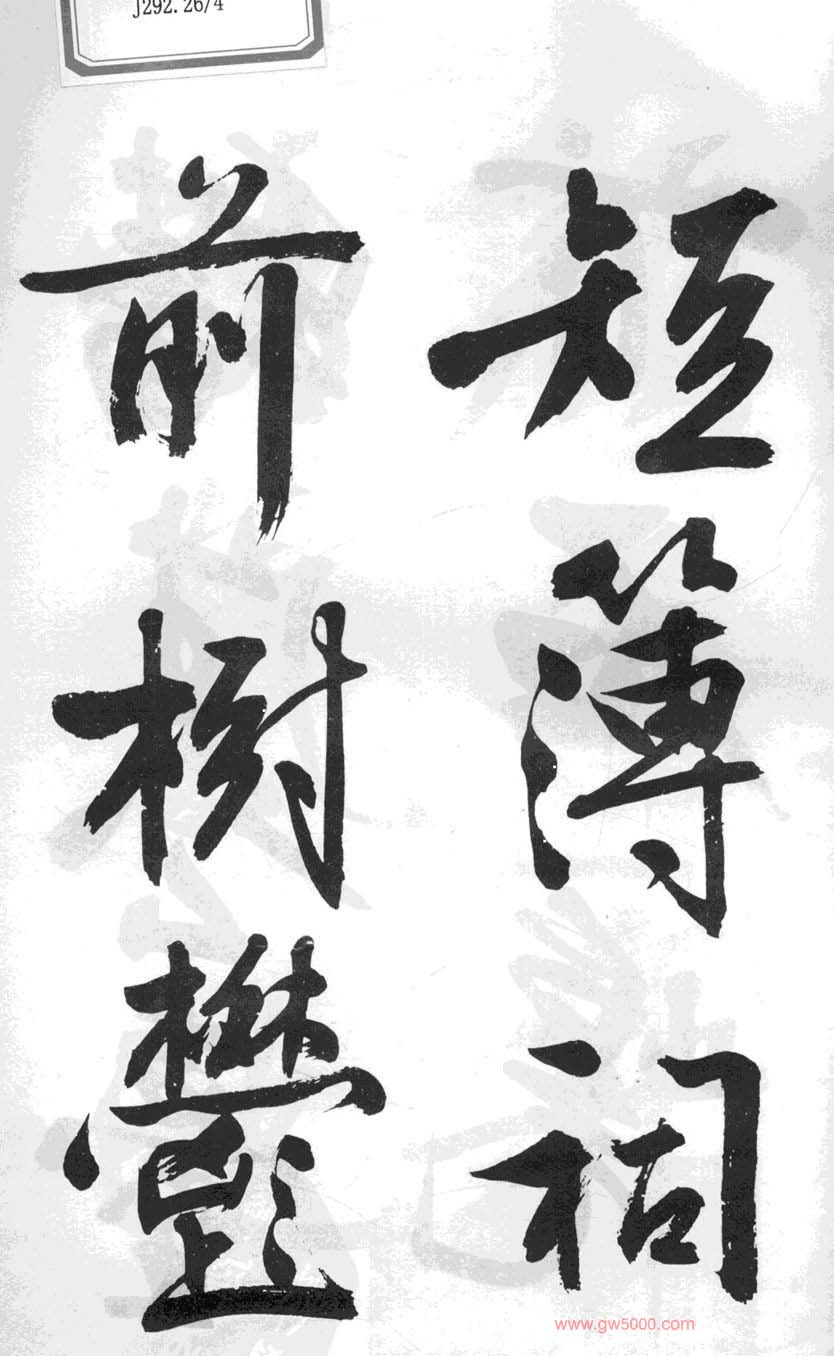 J292.26/4
短簿祠
前樹鬱
www.gw5000.com